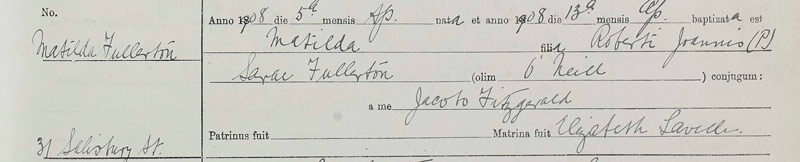 No.
Anno 1908 die 5a mensis Ap. nata et anno 1908 die 13a mensis Ap. baptizata est
Matilda Fullerton
Matilda filia Roberti Joannis (P)
Sarae Fullerton (olim O'Neill) conjugum:
a me Jacobo Fitzgerald
31 Salisbury St.
Patrinus fuit Matrina fuit Elizabeth